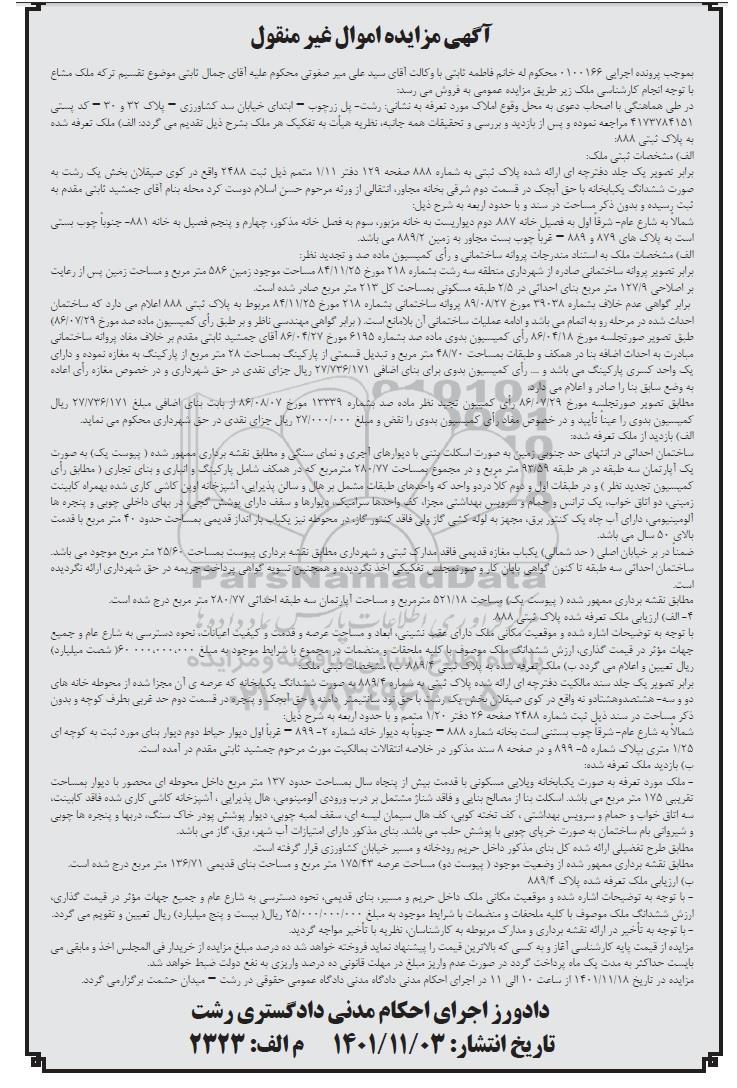 آگهی مزایده اموال غیر منقول
بموجب پرونده اجرایی ۰۱۰۰۱۶۶ محکوم له خانم فاطمه ثابتی با وکالت آقای سید علی میر صفوتی محکوم علیه آقای جمال ثابتی موضوع تقسیم ترکه ملک مشاع
با توجه انجام کارشناسی ملک زیر طریق مزایده عمومی به فروش می رسد:
در طی هماهنگی با اصحاب دعوی به محل وقوع املاک مورد تعرفه به نشانی: رشت- پل زرچوب – ابتدای خیابان سد کشاورزی – پلاک ۳۲ و ۳۰ – کد پستی
۴۱۷۳۷۸۴۱۵۱ مراجعه نموده و پس از بازدید و بررسی و تحقیقات همه جانبه، نظریه هیأت به تفکیک هر ملک بشرح ذیل تقدیم می گردد: الف) ملک تعرفه شده
به پلاک ثبتی ۸۸۸:
الف) مشخصات ثبتی ملک:
برابر تصویر یک جلد دفترچه ای ارائه شده پلاک ثبتی به شماره ۸۸۸ صفحه ۱۲۹ دفتر ۱/۱۱ متمم ذیل ثبت ۲۴۸۸ واقع در کوی صیقلان بخش یک رشت به
صورت ششدانگ یکبابخانه با حق آبچک در قسمت دوم شرقی بخانه مجاور، انتقالی از ورثه مرحوم حسن اسلام دوست کرد محله بنام آقای جمشید ثابتی مقدم به
ثبت رسیده و بدون ذکر مساحت در سند و با حدود اربعه به شرح ذیل:
شمالاً به شارع عام- شرقاً اول به فصیل خانه ۸۸۷. دوم دیواریست به خانه مزبور، سوم به فصل خانه مذکور، چهارم و پنجم فصیل به خانه ۸۸۱- جنوباً چوب بستی
است به پلاک های ۸۷۹ و ۸۸۹ – غرباً چوب بست مجاور به زمین ۸۸۹/۲ می باشد.
الف) مشخصات ملک به استناد مندرجات پروانه ساختمانی و رأی کمیسیون ماده صد و تجدید نظر:
برابر تصویر پروانه ساختمانی صادره از شهرداری منطقه سه رشت بشماره ۲۱۸ مورخ ۸۴/۱۱/۲۵ مساحت موجود زمین ۵۸۶ متر مربع و مساحت زمین پس از رعایت
بر اصلاحی ۱۲۷/۹ متر مربع بنای احداثی در ۲/۵ طبقه مسکونی بمساحت کل ۲۱۳ متر مربع صادر شده است.
برابر گواهی عدم خلاف بشماره ۳۹۰۳۸ مورخ ۸۹/۰۸/۲۷ پروانه ساختمانی بشماره ۲۱۸ مورخ ۸۴/۱۱/۲۵ مربوط به پلاک ثبتی ۸۸۸ اعلام می دارد که ساختمان
احداث شده در مرحله رو به اتمام می باشد و ادامه عملیات ساختمانی آن بلامانع است. ( برابر گواهی مهندسی ناظر و بر طبق رأی کمیسیون ماده صد مورخ ۸۶/۰۷/۲۹)
طبق تصویر صورتجلسه مورخ ۸۶/۰۴/۱۸ رأی کمیسیون بدوی ماده صد بشماره ۶۱۹۵ مورخ ۸۶/۰۴/۲۷ آقای جمشید ثابتی مقدم بر خلاف مفاد پروانه ساختمانی
مبادرت به احداث اضافه بنا در همکف و طبقات بمساحت ۴۸/۷۰ متر مربع و تبدیل قسمتی از پارکینگ بمساحت ۲۸ متر مربع از پارکینگ به مغازه نموده و دارای
یک واحد کسری پارکینگ می باشد و .... رأی کمیسیون بدوی برای بنای اضافی ۲۷/۷۳۶/۱۷۱ ریال جزای نقدی در حق شهرداری و در خصوص مغازه رأی اعاده
به وضع سابق بنا را صادر و اعلام می دارد.
مطابق تصویر صورتجلسه مورخ ۸۶/۰۷/۲۹ رأی کمیسیون تجید نظر ماده صد بشماره ۱۳۳۳۹ مورخ ۸۶/۰۸/۰۷ از بابت بنای اضافی مبلغ ۲۷/۷۳۶/۱۷۱ ریال
کمیسیون بدوی را عیناً تأیید و در خصوص مفاد رأی کمیسیون بدوی را نقض و مبلغ ۲۷/۰۰۰/۰۰۰ ریال جزای نقدی در حق شهرداری محکوم می نماید.
الف) بازدید از ملک تعرفه شده:
ساختمان احداثی در انتهای حد جنوبی زمین به صورت اسکلت بتنی با دیوارهای آجری و نمای سنگی و مطابق نقشه برداری ممهور شده ( پیوست یک) به صورت
یک آپارتمان سه طبقه در هر طبقه ۹۳/۵۹ متر مربع و در مجموع بمساحت ۲۸۰/۷۷ مترمربع که در همکف شامل پارکینگ و انباری و بنای تجاری ( مطابق رأی
کمیسیون تجدید نظر ) و در طبقات اول و دوم کلاً دردو واحد که واحدهای طبقات مشمل بر هال و سالن پذیرایی، آشپزخانه اوپن کاشی کاری شده بهمراه کابینت
زمینی، دو اتاق خواب، یک تراتس و حمام و سرویس بهداشتی مجزا، کف واحدها سرامیک، دیوارها و سقف دارای پوشش گچی، در بهای داخلی چوبی و پنجره ها
آلومینیومی، دارای آب چاه یک کنتور برق، مجهز به لوله کشی گاز ولی فاقد کنتور گاز، در محوطه نیز یکباب بار انداز قدیمی بمساحت حدود ۴۰ متر مربع با قدمت
بالای ۵۰ سال می باشد.
ضمنا در بر خیابان اصلی ( حد شمالی) یکباب مغازه قدیمی فاقد مدارک ثبتی و شهرداری مطابق نقشه برداری پیوست بمساحت ۲۵/۶۰ متر مربع موجود می باشد.
ساختمان احداثی سه طبقه تا کنون گواهی پایان کار و صورتمجلس تفکیکی اخذ نگردیده و همچنین تسویه گواهی پرداخت جریمه در حق شهرداری ارائه نگردیده
است.
مطابق نقشه برداری ممهور شده ( پیوست یک) مساحت ۵۲۱/۱۸ مترمربع و مساحت آپارتمان سه طبقه احداثی ۲۸۰/۷۷ متر مربع درج شده است.
۴- الف) ارزیابی ملک تعرفه شده پلاک ثبتی ۸۸۸.
با توجه به توضیحات اشاره شده و موقعیت مکانی ملک دارای عقب نشینی، ابعاد و مساحت عرصه و قدمت و کیفیت اعیانات، نحوه دسترسی به شارع عام و جمیع
جهات مؤثر در قیمت گذاری، ارزش ششدانگ ملک موصوف با کلیه ملحقات و منضمات در مجموع با شرایط موجود به مبلغ ۶۰/۰۰۰/۰۰۰/۰۰۰ ( شصت میلیارد)
ریال تعیین و اعلام می گردد ب) ملک تعرفه شده به پلاک ثبتی ۸۸۹/۴ ب) مشخصات ثبتی ملک:
برابر تصویر یک جلد سند مالکیت دفترچه ای ارائه شده پلاک ثبتی به شماره ۸۸۹/۴ به صورت ششدانگ یکبابخانه که عرصه ی آن مجزا شده از محوطه خانه های
دو و سه- هشتصدوهشتادو نه واقع در کوی صیقلان بخش یک رشت با حق نود سانتیمتر دامنه و حق آبچک و پنجره در قسمت دوم حد غربی بطرف کوچه و بدون
ذکر مساحت در سند ذیل ثبت شماره ۲۴۸۸ صفحه ۲۶ دفتر ۱/۲۰ متمم و با حدود اربعه به شرح ذیل:
شمالاً به شارع عام- شرقاً چوب بستنی است بخانه شماره ۸۸۸ – جنوباً به دیوار خانه شماره ۲- ۸۹۹ – غرباً اول دیوار حیاط دوم دیوار بنای مورد ثبت به کوچه ای
۱/۲۵ متری بپلاک شماره ۵- ۸۹۹ و در صفحه ۸ سند مذکور در خلاصه انتقالات بمالکیت مورث مرحوم جمشید ثابتی مقدم در آمده است.
ب) بازدید ملک تعرفه شده:
- ملک مورد تعرفه به صورت یکبابخانه ویلایی مسکونی با قدمت بیش از پنجاه سال بمساحت حدود ۱۳۷ متر مربع داخل محوطه ای محصور با دیوار بمساحت
تقریبی ۱۷۵ متر مربع می باشد. اسکلت بنا از مصالح بنایی و فاقد شناژ مشتمل بر درب ورودی آلومینومی، هال پذیرایی ، آشپزخانه کاشی کاری شده فاقد کابینت،
سه اتاق خواب و حمام و سرویس بهداشتی ، کف تخته کوبی، کف هال سیمان لیسه ای، سقف لمبه چوبی، دیوار پوشش پودر خاک سنگ، دربها و پنجره ها چوبی
و شیروانی بام ساختمان به صورت خرپای چوبی با پوشش حلب می باشد. بنای مذکور دارای امتیازات آب شهر، برق، گاز می باشد.
مطابق طرح تفضیلی ارائه شده کل بنای مذکور داخل حریم رودخانه و مسیر خیابان کشاورزی قرار گرفته است.
مطابق نقشه برداری ممهور شده از وضعیت موجود ( پیوست دو) مساحت عرصه ۱۷۵/۴۳ متر مربع و مساحت بنای قدیمی ۱۳۶/۷۱ متر مربع درج شده است.
ب) ارزیابی ملک تعرفه شده پلاک ۸۸۹/۴
- با توجه به توضیحات اشاره شده و موقعیت مکانی ملک داخل حریم و مسیر، بنای قدیمی، نحوه دسترسی به شارع عام و جمیع جهات مؤثر در قیمت گذاری،
ارزش ششدانگ ملک موصوف با کلیه ملحقات و منضمات با شرایط موجود به مبلغ ۲۵/۰۰۰/۰۰۰/۰۰۰ ریال( بیست و پنج میلیارد) ریال تعیین و تقویم می گردد.
- با توجه به تأخیر در ارائه نقشه برداری و مدارک مربوطه به کارشناسان، نظریه با تأخیر مواجه گردید.
مزایده از قیمت پایه کارشناسی آغاز و به کسی که بالاترین قیمت را پیشنهاد نماید فروخته خواهد شد ده درصد مبلغ مزایده از خریدار فی المجلس اخذ و مابقی می
بایست حداکثر به مدت یک ماه پرداخت گردد در صورت عدم واریز مبلغ در مهلت قانونی ده درصد واریزی به نفع دولت ضبط خواهد شد.
مزایده در تاریخ ۱۴۰۱/۱۱/۱۸ از ساعت ۱۰ الی ۱۱ در اجرای احکام مدنی دادگاه مدنی دادگاه عمومی حقوقی در رشت – میدان حشمت برگزارمی گردد.
دادورز اجرای احکام مدنی دادگستری رشت
تاریخ انتشار: ۱۴۰۱/۱۱/۰۳ م الف: ۲۳۲۳
ParsNamadData